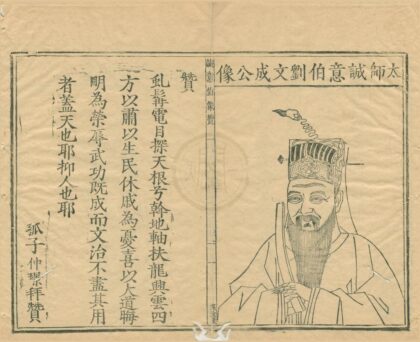 太師誠意伯劉文成公像
贊
虬髯電目探天根兮斡地軸扶龍興雲四
方以肅以生民休戚為憂喜以大道晦
明為榮辱武功既成而文治不盡其用
者蓋天也耶抑人也耶
孤子仲璟拜贊